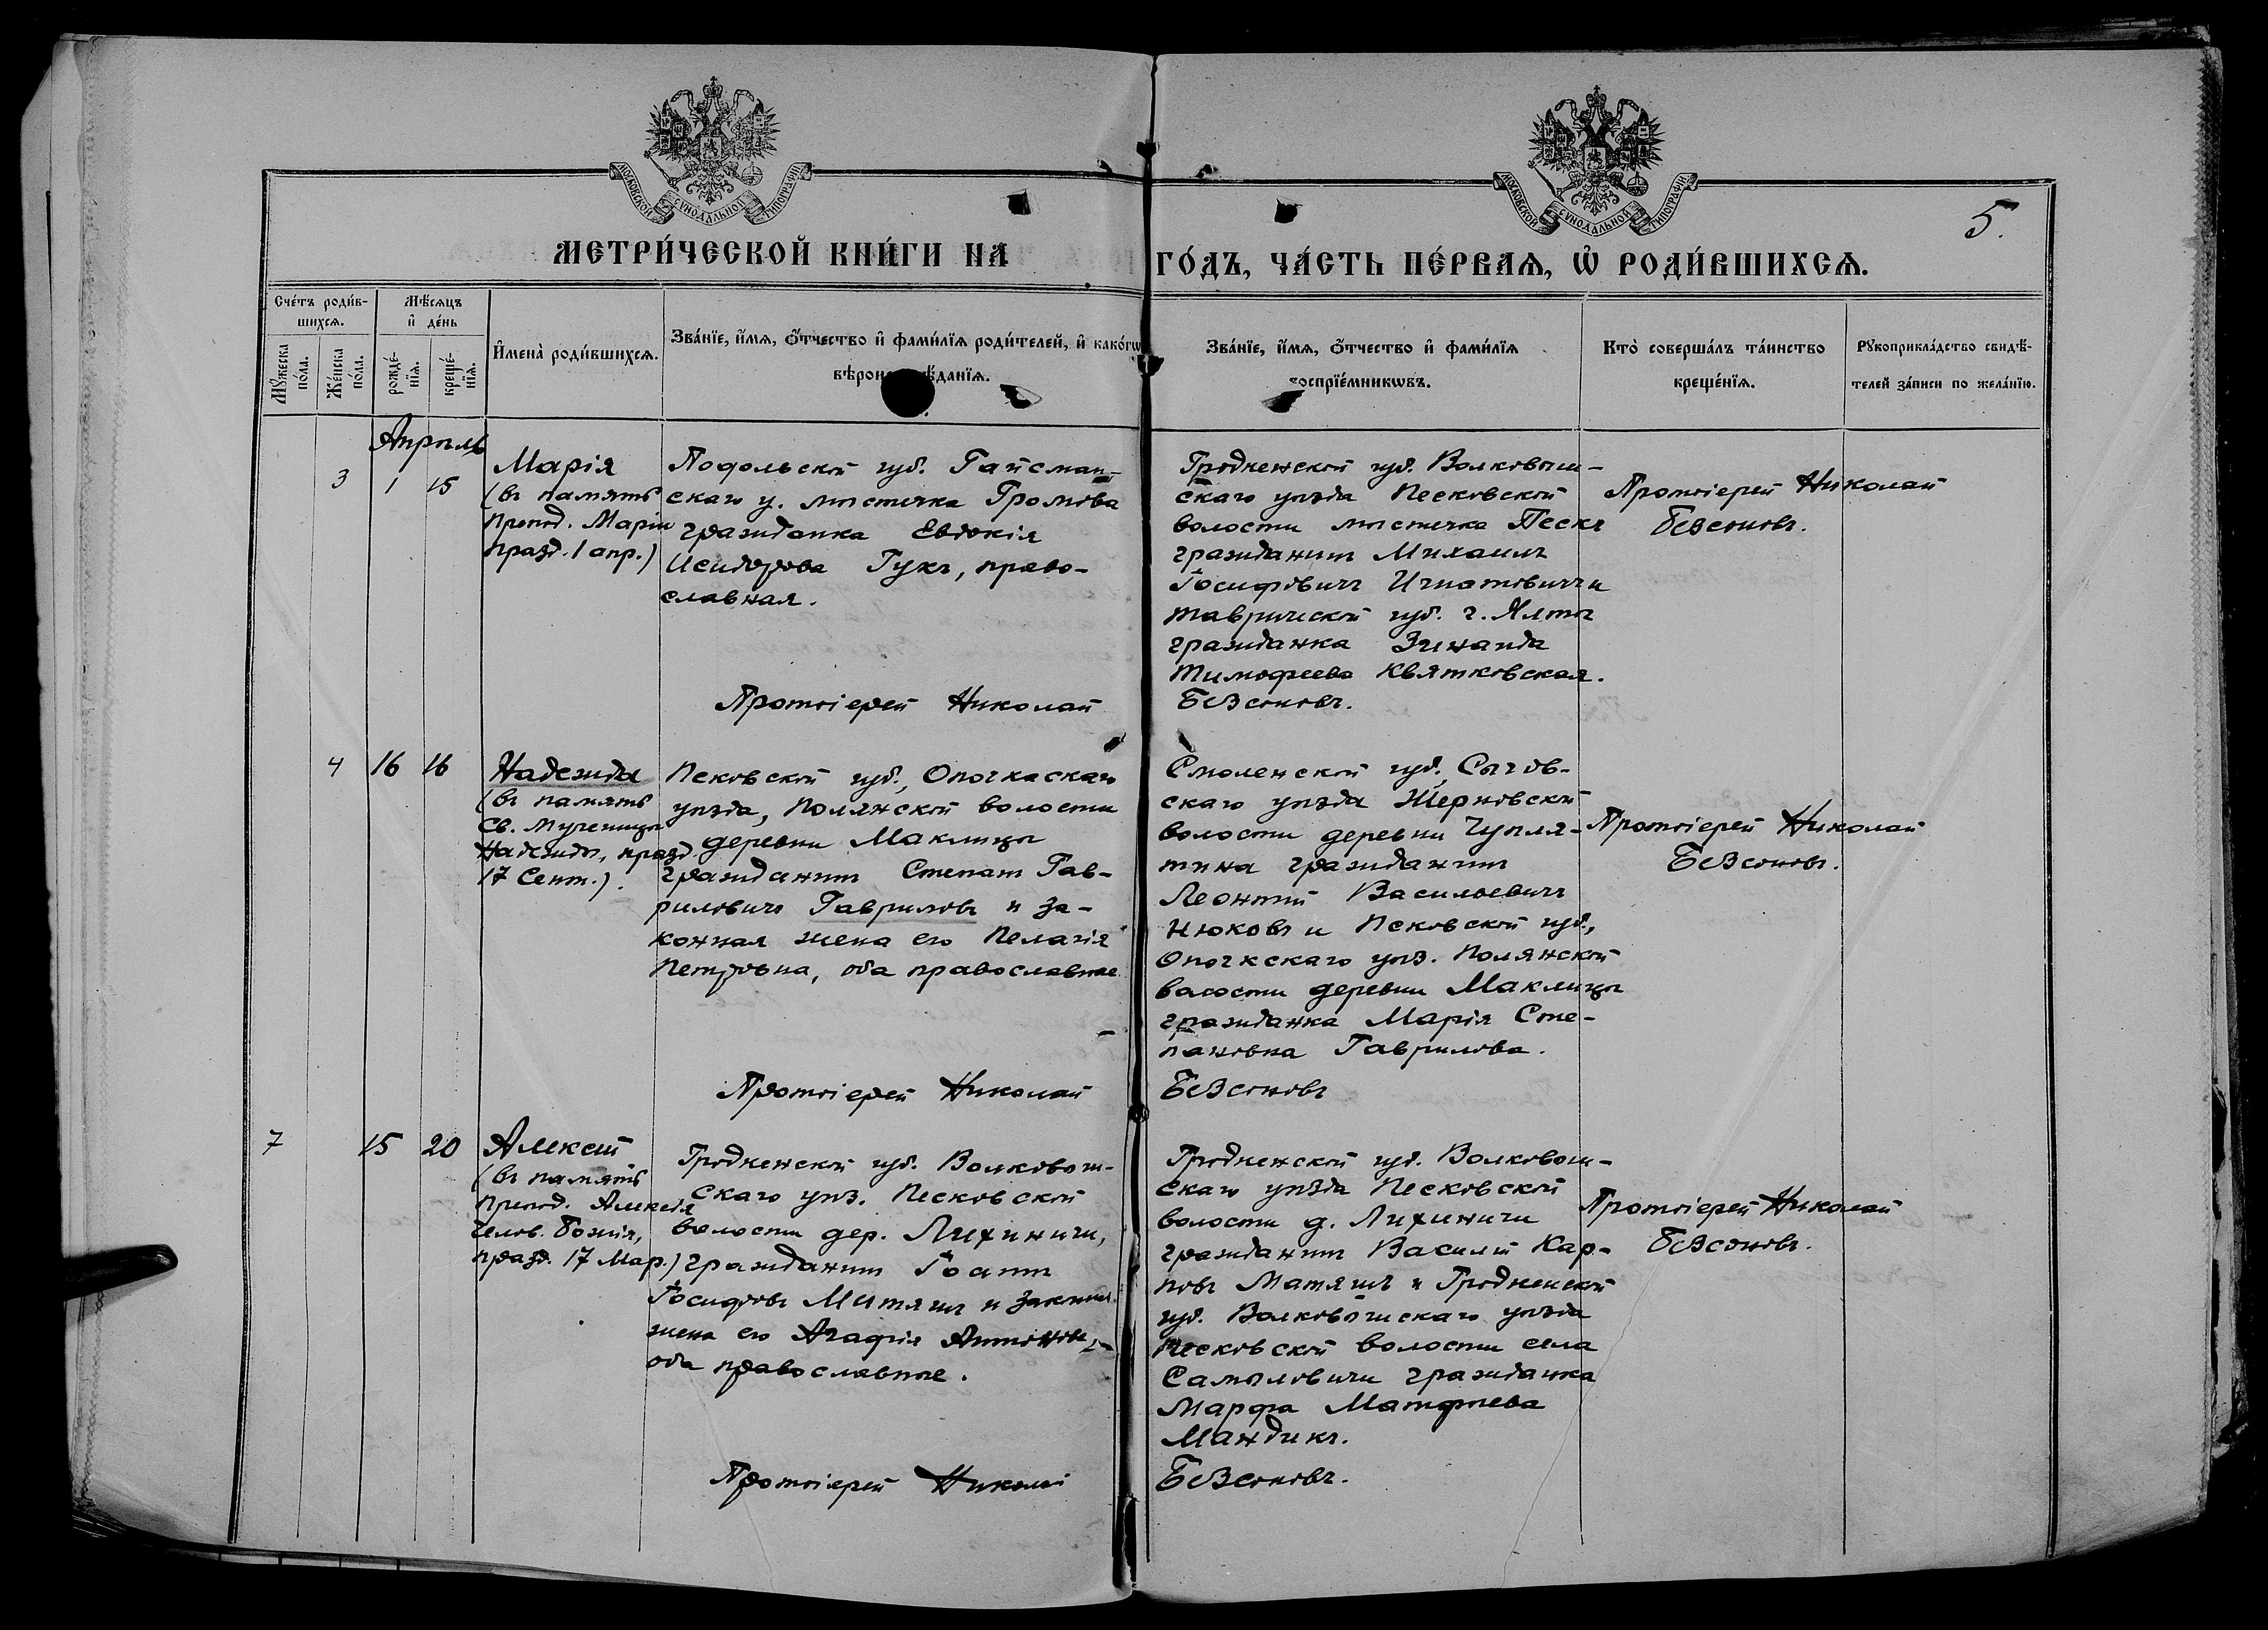 МОСКОВСКОЙ СѴНОДАЛЬНОЙ ТИПОГРАФІИ
МОСКОВСКОЙ СѴНОДАЛЬНОЙ ТИПОГРАФІИ
5.
МЕТРИ́ЧЕСКОЙ КНИ́ГИ НА̀ ГО́ДЪ, ЧА́СТЬ ПЕ́РВАѦ, Ѡ҆ РОДИ́ВШИХСѦ.
Сче́тъ роди́в-
шихсѧ.
Мѣ́сѧцъ
и҆ де́нь
Мꙋ́жеска
по́ла.
Же́нска
по́ла.
рожде́-
нїѧ.
креще́-
нїѧ.
И҆мена̀ роди́вшихсѧ.
Зва́нїе, и҆́мѧ, ѻ҆́тчество и҆ фами́лїѧ роди́телей, и҆ како́гѡ
Зва́нїе, и҆́мѧ, ѻ҆́тчество и҆ фами́лїѧ
воспрїе́мникѡвъ.
Кто̀ соверша́лъ та́инство
креще́нїѧ.
Рꙋкоприкла́дство свидѣ́-
телей за́писи по жела́нїю.
Апрѣль
3 1 15
Марія
(въ память
препод. Маріи
празд. 1 апр.)
Подольской губ. Гайсин-
скаго у. мѣстечка Громова
гражданка Евдокія
Исидорова Гукъ, право-
славная.
Гродненской губ. Волковыш-
скаго уѣзда Песковской
волости мѣстечка Пескъ
гражданинъ Михаилъ
Іосифовичъ Игнатовичъ и
Таврической губ. г. Ялты
гражданка Зинаида
Тимофеева Квятковская.
Протоіерей Николай
Безсоновъ.
Протоіерей Николай Безсоновъ.
4 16 16
Надежда
(въ память
Св. Мученицы
Надежды, празд.
17 Сент.).
Псковской губ., Опочкаскаго
уѣзда, Полянской волости
деревни Маклицы
гражданинъ Степанъ Гав-
риловичъ Гавриловъ и за-
конная жена его Пелагія
Петровна, оба православные
Смоленской губ., Сычов-
скаго уѣзда
волости деревни
гражданинъ
Леонтій Васильевичъ
Нюковъ и Псковской губ.,
Опочкскаго уѣз. Полянской
волости деревни Маклицы
гражданка Марія Сте-
пановна Гаврилова.
Протоіерей Николай
Безсоновъ.
Протоіерей Николай Безсоновъ
7 15 20
Алексій
(въ память
препод. Алексія
челов. Божія,
празд. 17 Мар.)
Гродненской губ. Волковыш-
скаго уѣз. Песковской
волости дер. Лихиничи,
гражданинъ Іоаннъ
Іосифовъ и законная
жена его Агафія Антонова,
оба православные.
Гродненской губ. Волковыш-
скаго уѣзда Песковской
волости д. Лихиничи
гражданинъ Василій Кар-
повъ Матяшъ и Гродненской
губ. Волковышскаго уѣзда
Песковской волости села
Самыловичи гражданка
Марфа Матфѣева
Мандикъ.
Протоіерей Николай
Безсоновъ.
Протоіерей Николай Безсоновъ.